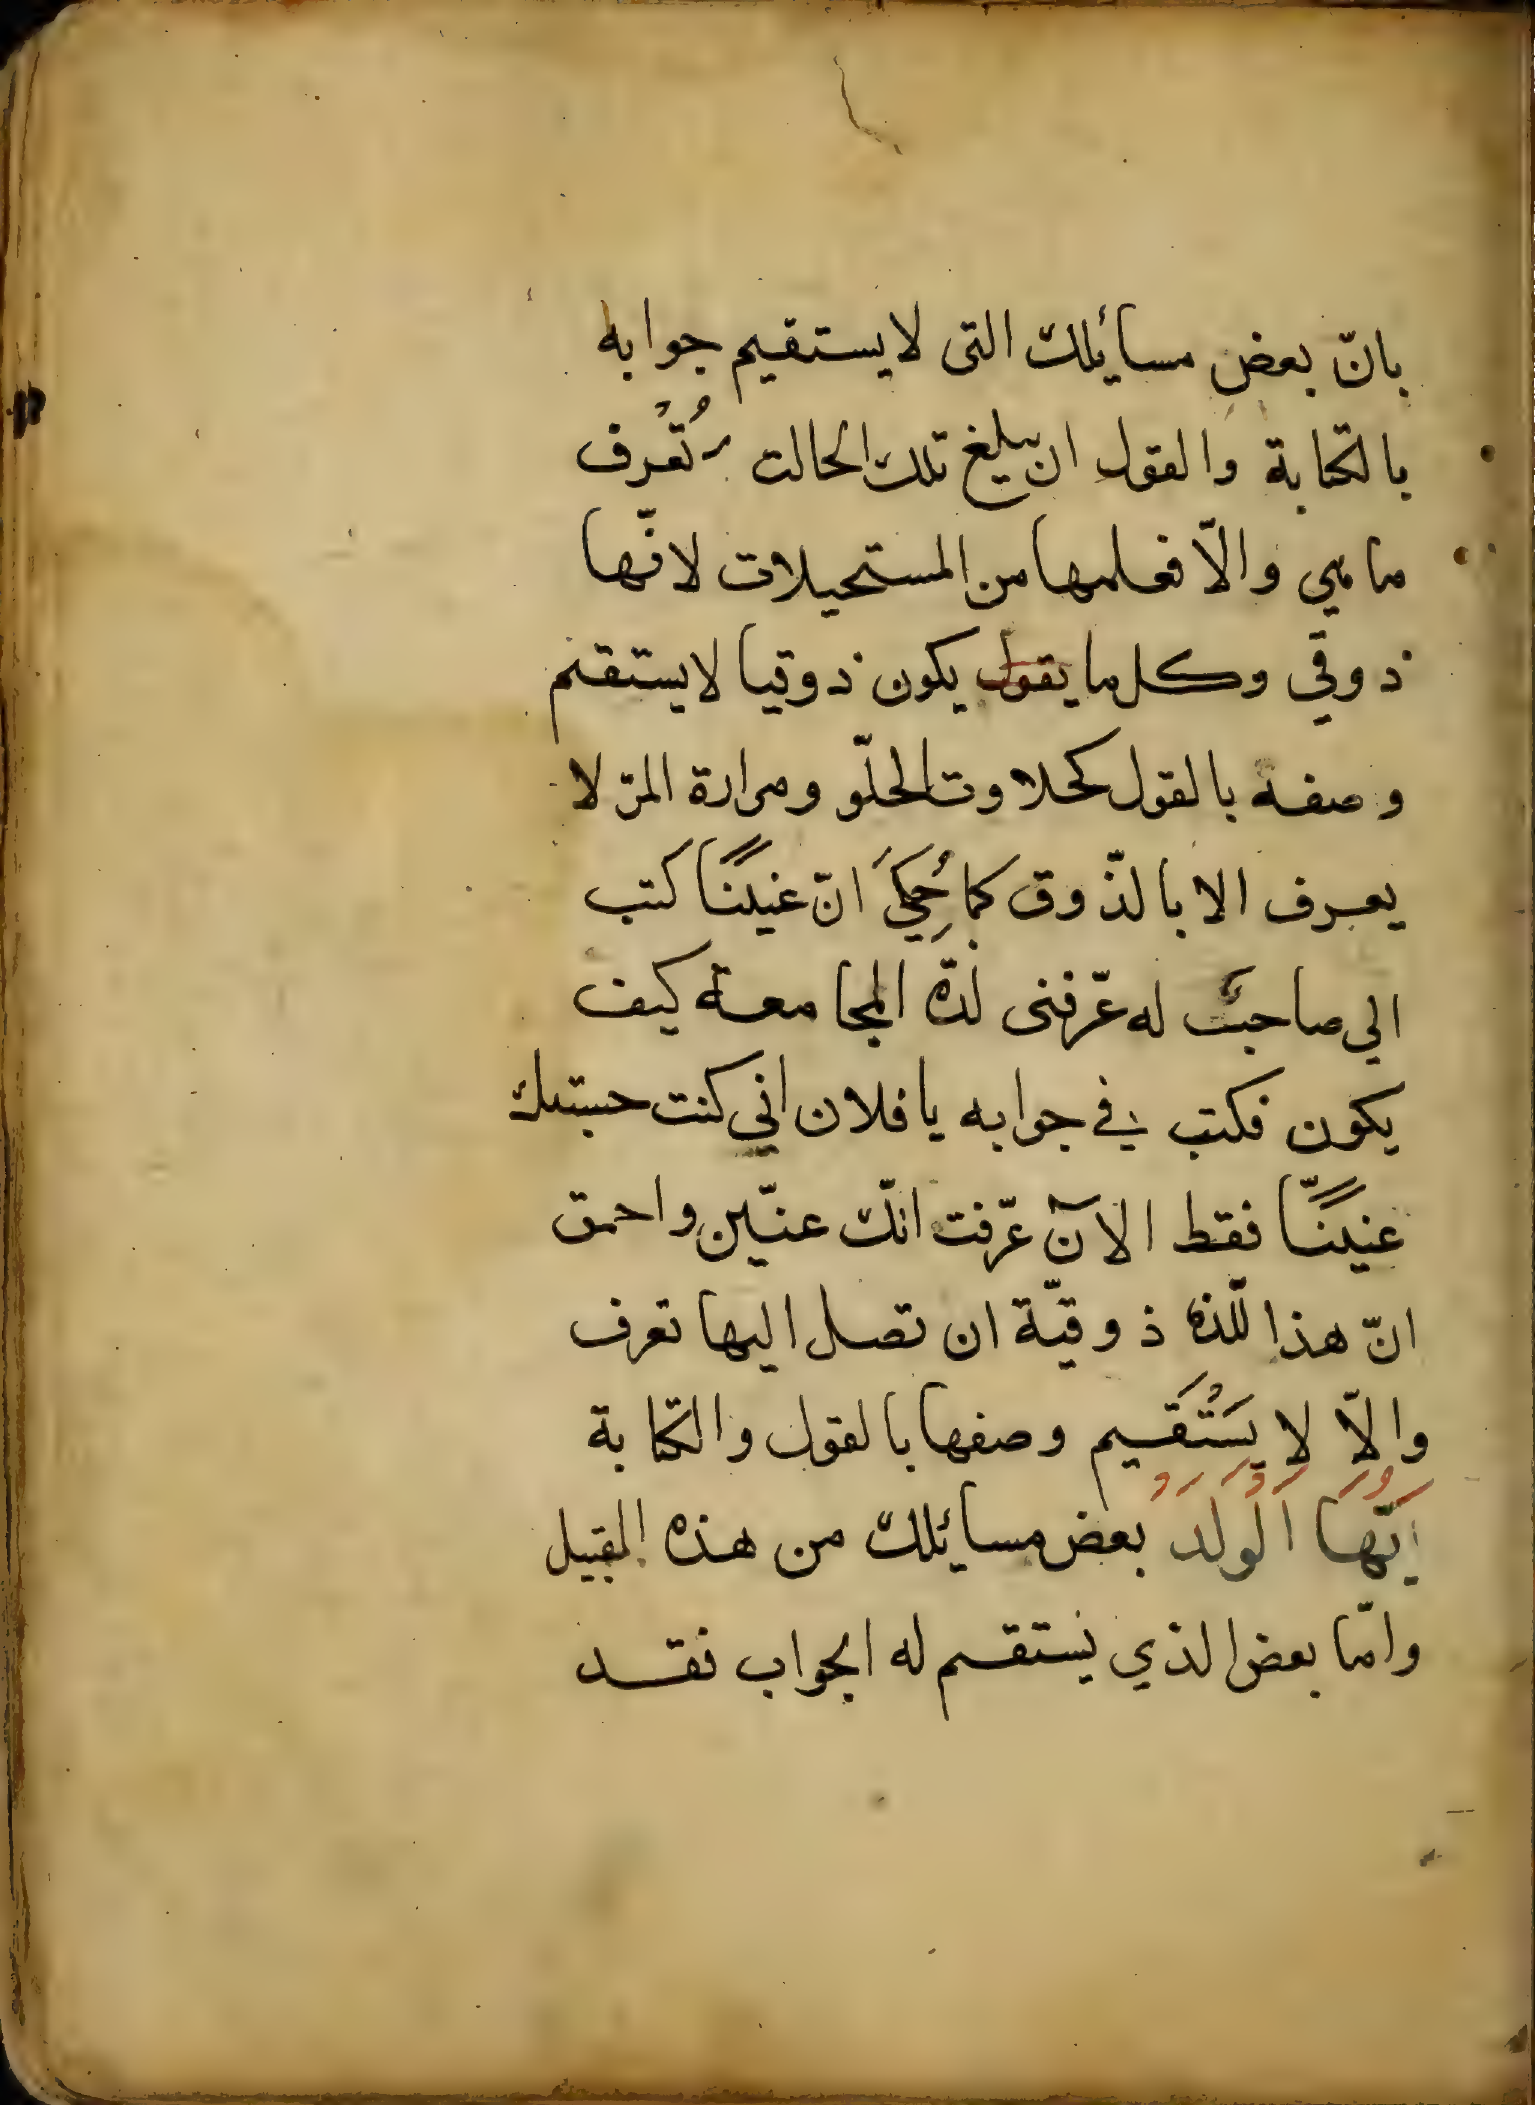 بانّ بعض مسائلك التى لا يستقيم جوابه
بالكتابة والقول ان يبلغ تلك الحالت تُعْرف
ما هي والّا فعلمها من المستحيلات لانّها
ذوقي وكل ما يقول يكون ذوقيا لا يستقيم
وصفه بالقول كحلاوت الحلّو ومرارة المرّ لا
يعرف الا بالذّوق كما حُكِيَ انّ عنينًا كتب
الي صاحب له عرّفنى لذّة المجامعة كيف
يكون فكتب في جوابه يا فلان اني كنت حسبتك
عنينًّا فقط الآن عرّفت انّك عنّين واحمق
انّ هذا للّذة ذوقيّة ان تصل اليها تعرف
والّا لا يَسْتَقيم وصفها بالقول والكتابة
ايّهَا اَلْوَلَدُ بعض مسائلك من هذه القبيل
وامّا بعض الذي يستقيم له الجواب فقد